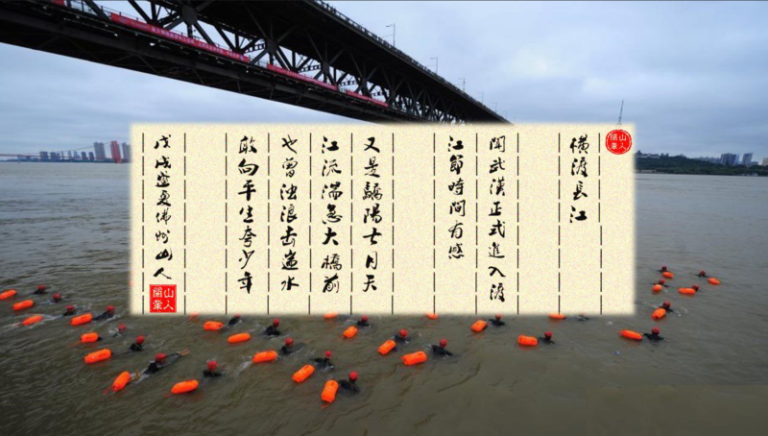 橫渡長江
聞武漢正式進入渡
江節時間有感
又是驕陽七月天
江流湍急大橋前
也曾浊浪击水
敢向平生夸少年
戊戌盛夏佛州山人
山人